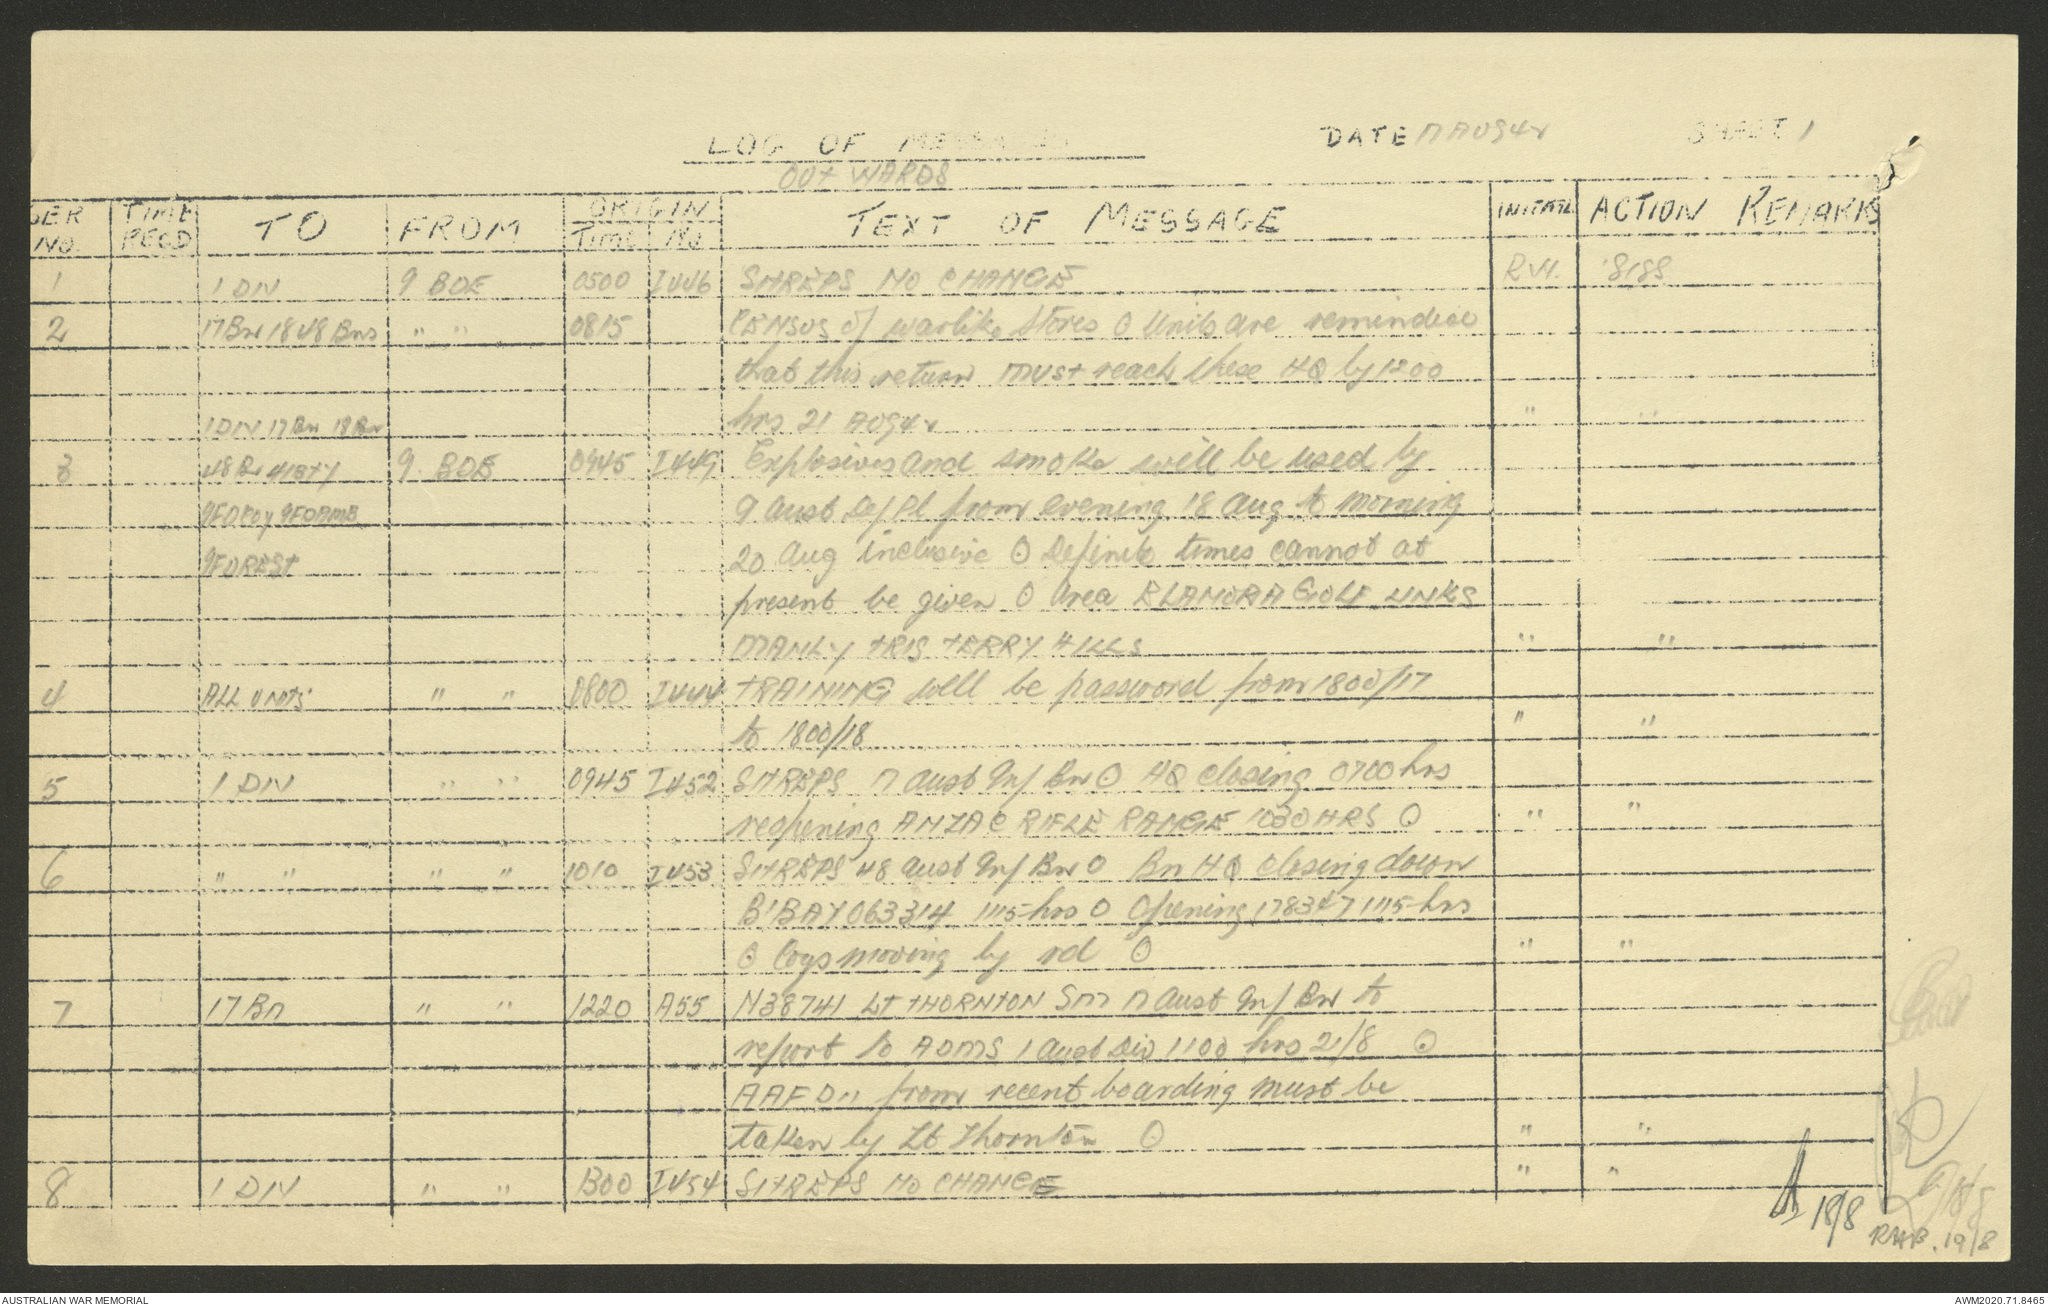 LOG OF MESSAGES DATE 17 AUG 42 SHEET 1
OUTWARDS
SER NO. TIME RECD TO FROM ORIGIN TIME No TEXT OF MESSAGE INITIAL ACTION REMARKS
1 1 DIV 9 BDE 0500 I446 SITREPS NO CHANGE R.V.H.
2 17 Bn 18 48 Bns " " 0815 CENSUS of warlike stores O Units are reminded
that this return must reach these HQ by 1200
1 DIV 17 Bn 18 Bn hrs 21 AUG 42 " "
3 48 Bn 9 BDE 0945 I449 Explosives and smoke will be used by
9 FD Coy 9 FD AMB 9 Aust Def Pl from evening 18 Aug to morning
20 Aug inclusive O Definite times cannot at
present be given O Area ELANORA GOLF LINKS
MANLY TRIS TERRY HILLS " "
4 ALL UNITS " " 0800 I444 TRAINING will be password from 1800/17
to 1800/18 " "
5 1 DIV " " 0945 I452 SITREPS 17 Aust Inf Bn O HQ closing 0700 hrs
reopening ANZAC RIFLE RANGE 1030 HRS O " "
6 " " " " 1010 I453 SITREPS 48 Aust Inf Bn O Bn HQ closing down
B'BAY 063314 1115 hrs O Opening 178347 1115 hrs
O Coys moving by rd O " "
7 17 Bn " " 1220 A55 N38741 Lt THORNTON SM 17 Aust Inf Bn to
report to ADMS 1 Aust Div 1100 hrs 21/8 O
from recent boarding must be
taken by Lt Thornton O " "
8 1 DIV " " 1300 I454 SITREPS NO CHANGE " "
18/8
19/8
AUSTRALIAN WAR MEMORIAL AWM2020.71.8465